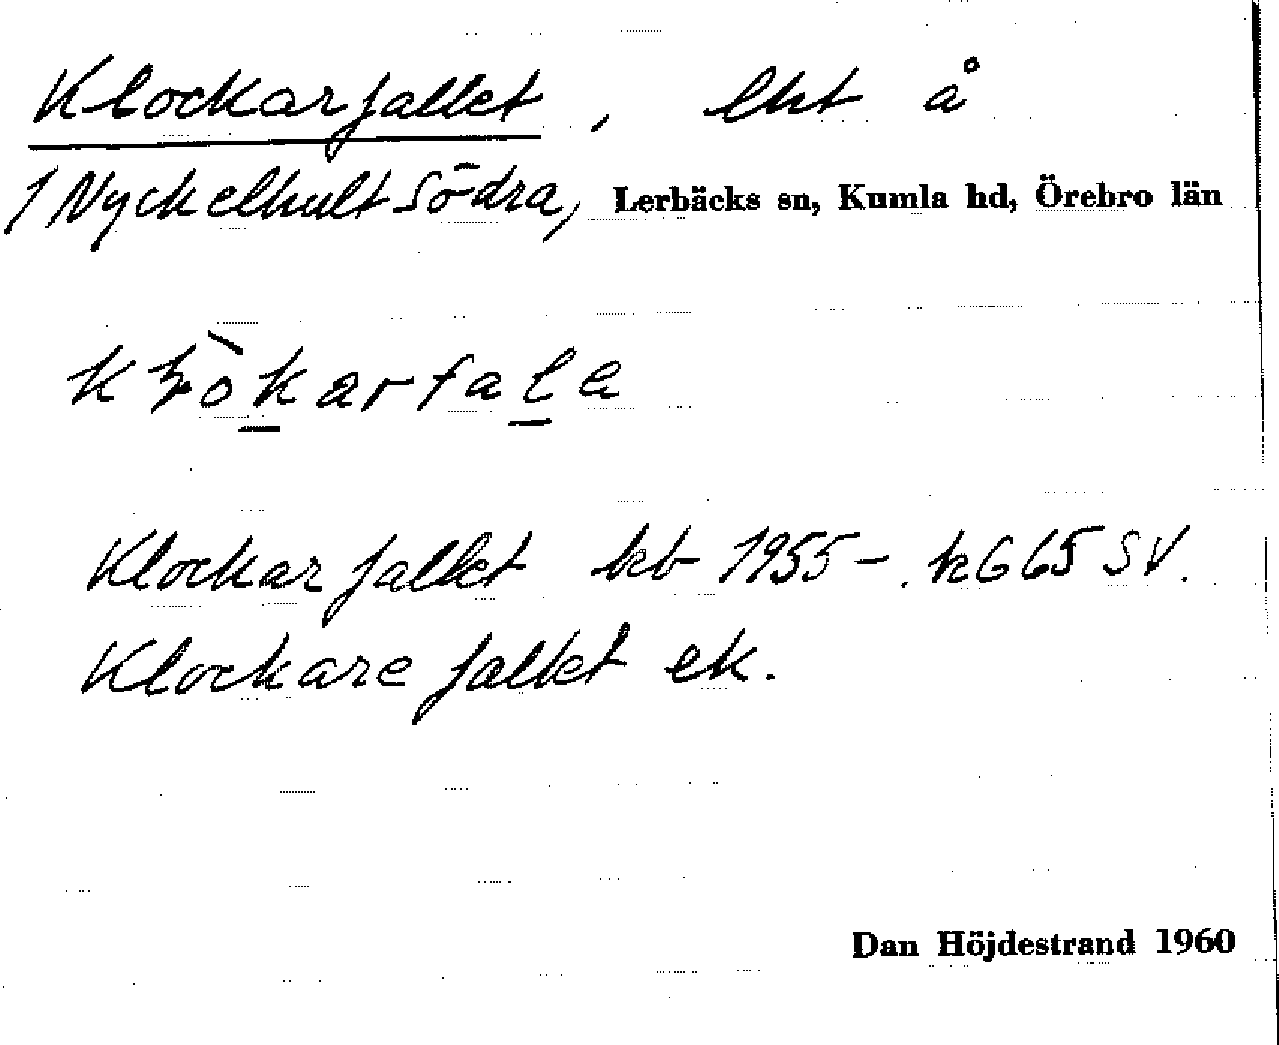 Klockarfallet, lht å
1 Nyckelhult Södra, Lerbäcks sn, Kumla hd, Örebro län
Klockarfallet kb 1955 - . k G 65 SV.
Klockare fallet ek.
Dan Höjdestrand 1960